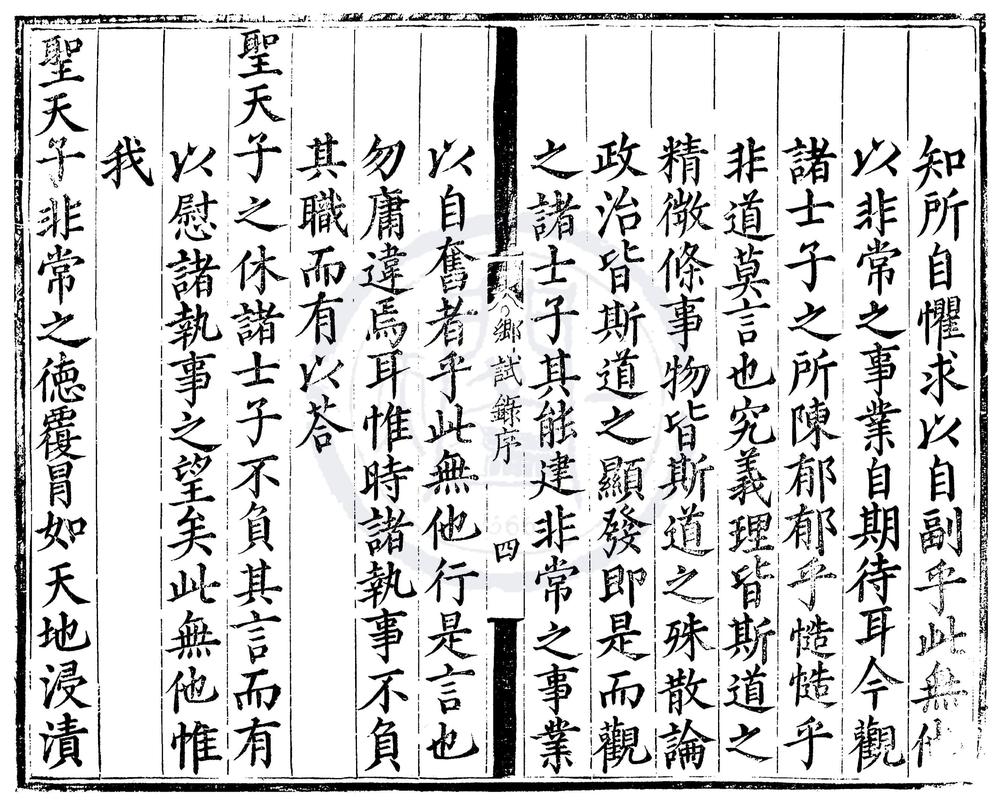 知所自懼求以自副乎此無他
以非常之事業自期待耳今觀
諸士子之所陳郁郁乎慥慥乎
非道莫言也究義理皆斯道之
精微條事物皆斯道之殊散論
政治皆斯道之顯發即是而觀
之諸士子其能建非常之事業
鄉試錄序
四
以自奮者乎此無他行是言也
勿庸違焉耳惟時諸執事不負
其職而有以荅
聖天子之休諸士子不負其言而有
以慰諸執事之望矣此無他惟
我
聖天子非常之德覆冒如天地浸漬